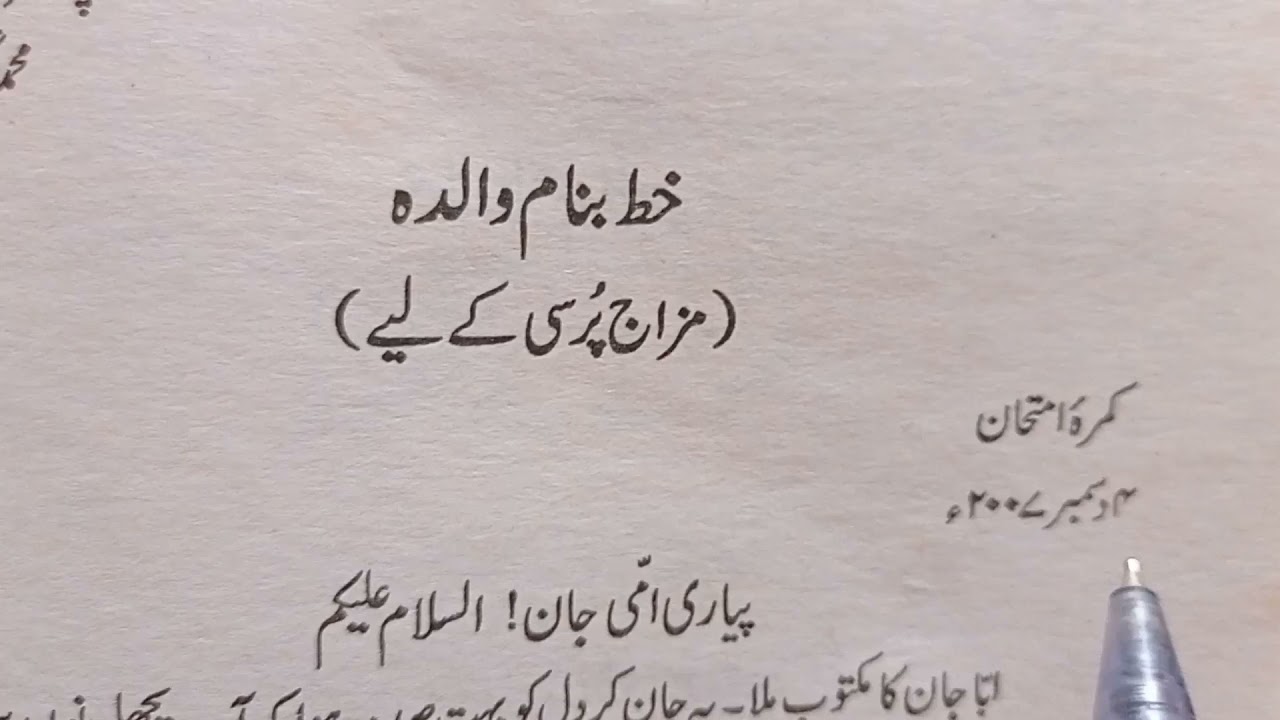 محمد
خط بنام والدہ
(مزاج پُرسی کے لیے)
کمرۂ امتحان
۴ دسمبر ۲۰۰۷ء
پیاری امّی جان! السلام علیکم
ابّا جان کا مکتوب ملا۔ یہ جان کر دل کو بہت